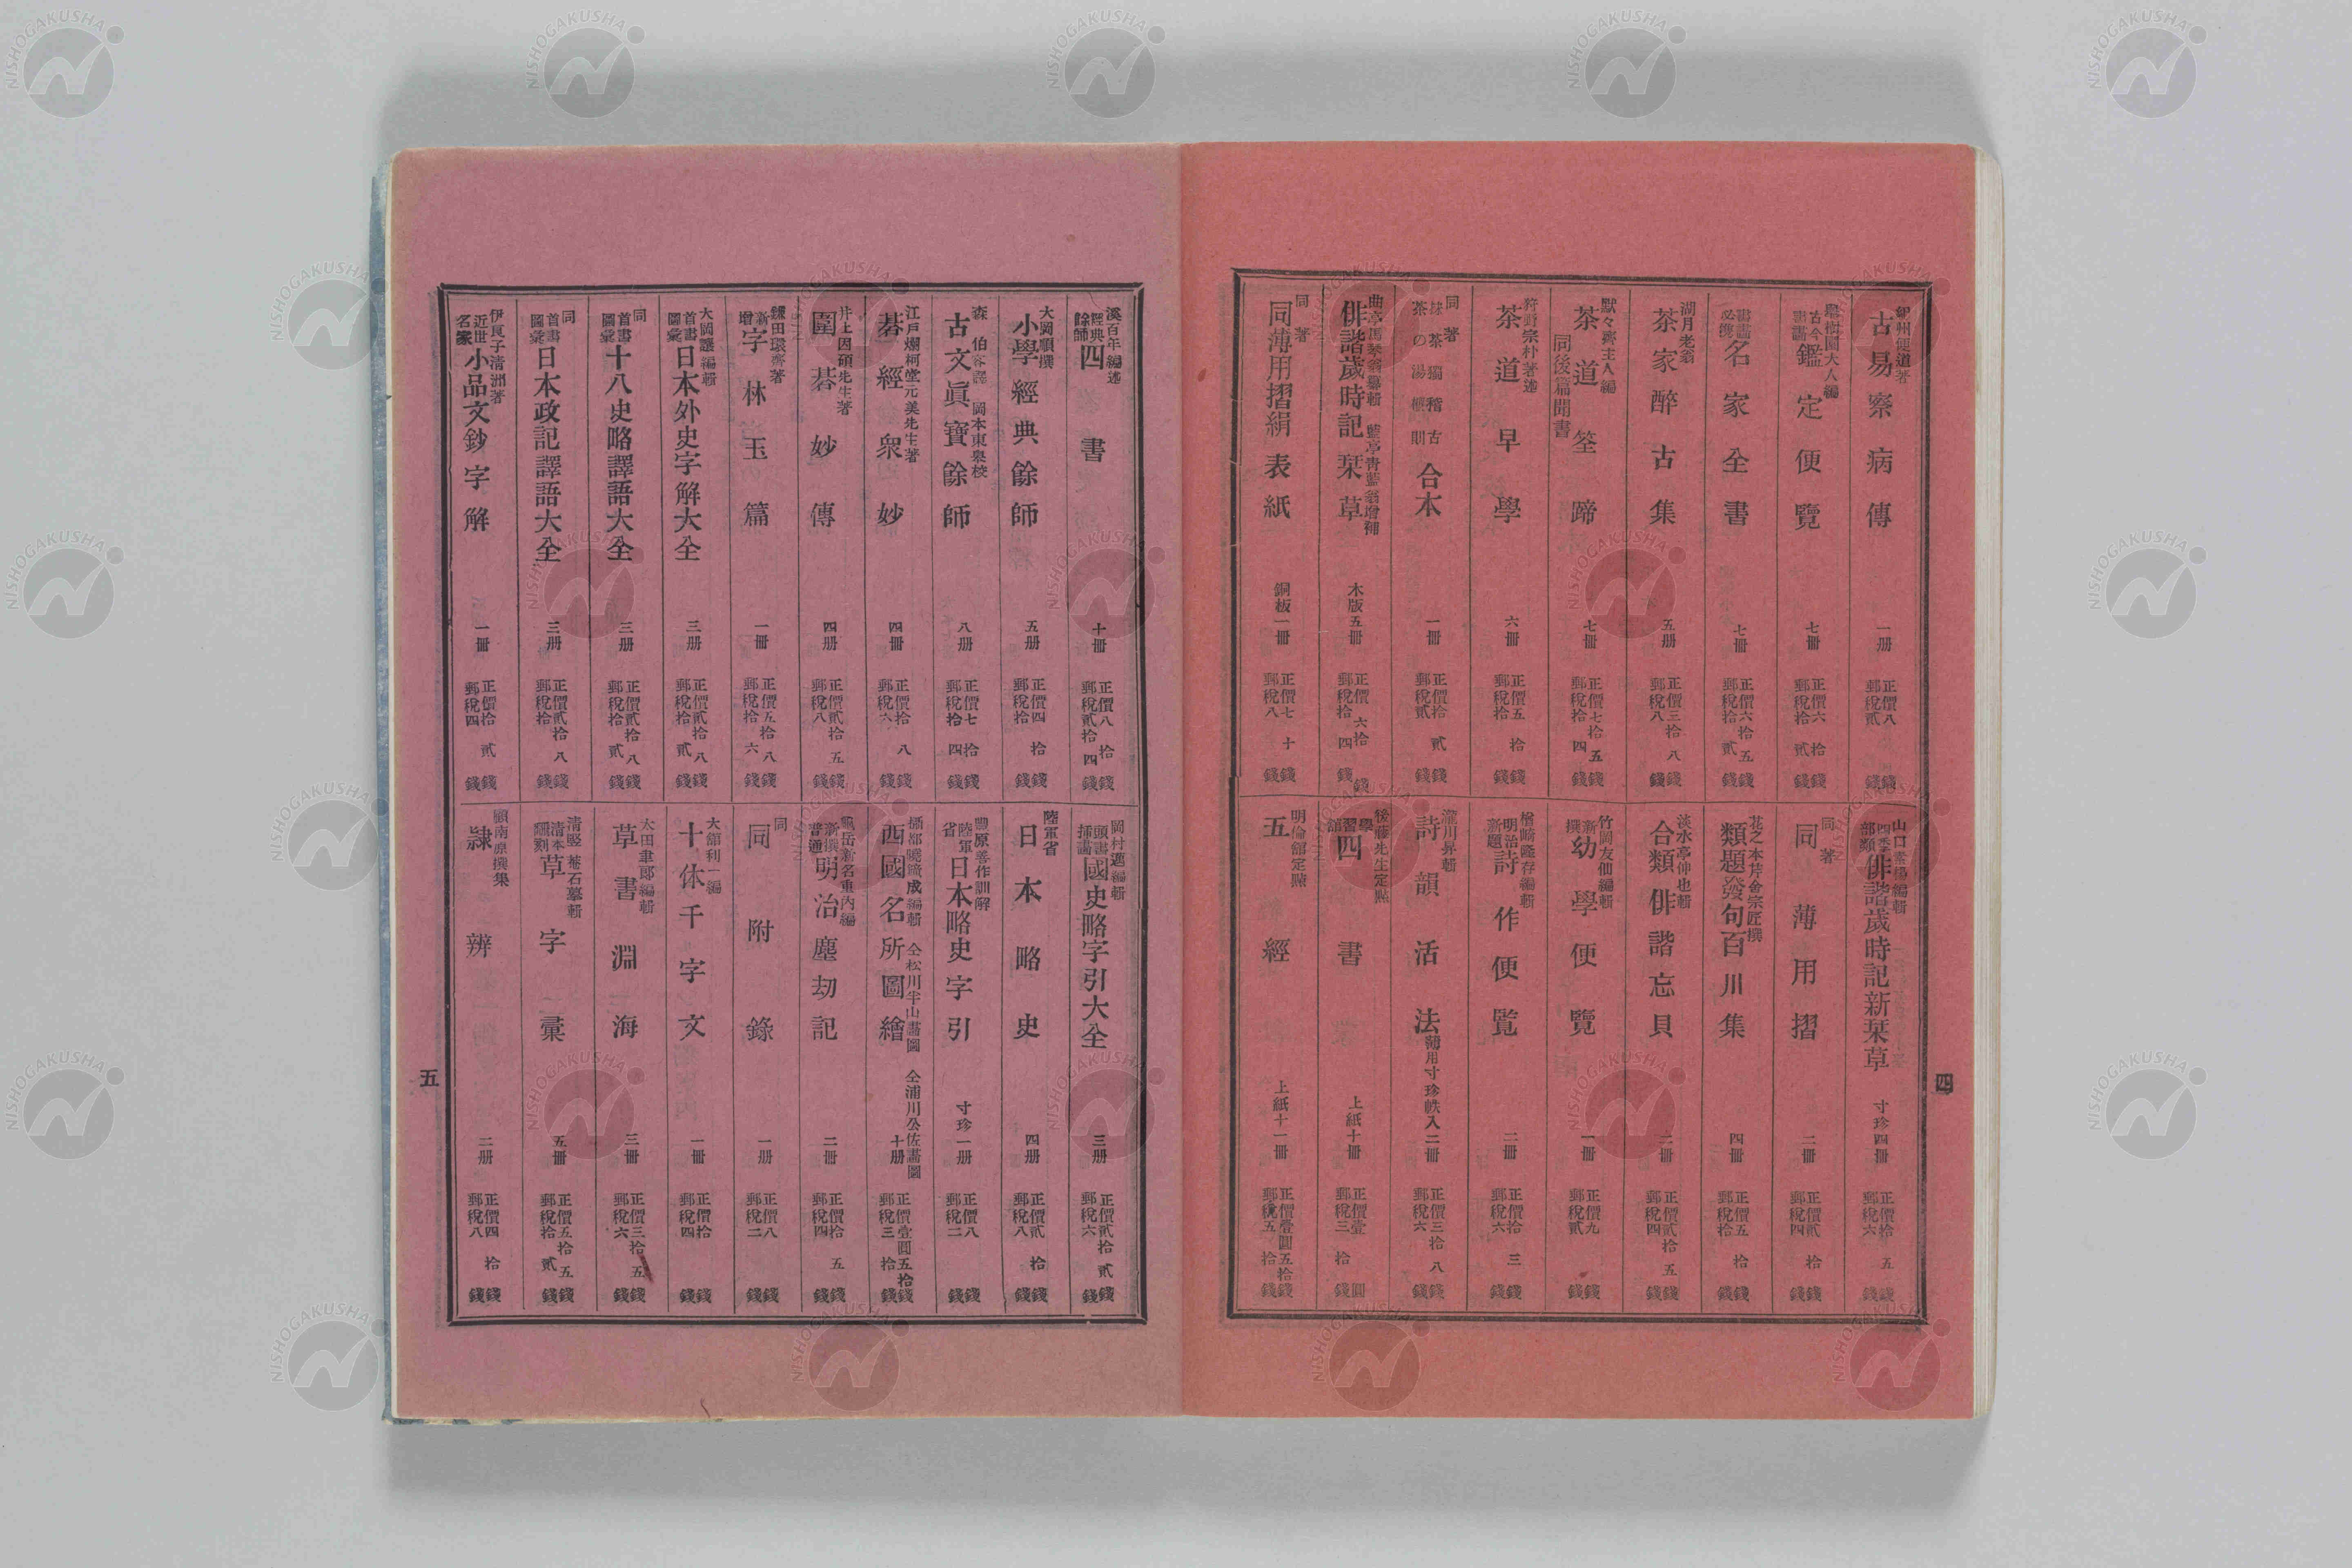 紀州便道著
古易察病傳 一册 正價八錢 郵稅貳錢
擧樹園大人編
古今書畫鑑定便覽 七冊 正價六拾錢 郵稅拾貳錢
書畫必携名家全書 七冊 正價六拾五錢 郵稅拾貳錢
湖月老翁
茶家醉古集 五册 正價三拾八錢 郵稅八錢
默々齋主人編
茶道筌蹄 同後篇聞書 七冊 正價七拾五錢 郵稅拾四錢
狩野宗朴著述
茶道早學 六冊 正價五拾錢 郵稅拾錢
同著
抹茶獨稽古 茶の湯概則 合本 一冊 正價拾貳錢 郵稅貳錢
曲亭馬琴翁纂輯 藍亭青藍翁增補
俳諧歲時記栞草 木版五冊 正價六拾錢 郵稅拾四錢
同著
同薄用摺絹表紙 銅板一冊 正價七十錢 郵稅八錢
山口素陽編輯
四季部類俳諧歲時記新栞草 寸珍四冊 正價拾五錢 郵稅六錢
同著
同薄用摺 二冊 正價貳拾錢 郵稅四錢
花之本芹舍宗匠撰
類題發句百川集 四冊 正價五拾錢 郵稅拾錢
淡水亭伸也輯
合類俳諧忘貝 二冊 正價貳拾五錢 郵稅四錢
竹岡友仙編輯
新撰幼學便覽 一冊 正價九錢 郵稅貳錢
楢崎隆存編輯
明治新題詩作便覽 二冊 正價拾三錢 郵稅六錢
瀧川昇輯
詩韻活法 薄用寸珍帙入二冊 正價三拾八錢 郵稅六錢
後藤先生定點
學習館四書 上紙十冊 正價壹圓 郵稅三拾錢
明倫館定點
五經 上紙十一冊 正價壹圓五拾錢 郵稅五拾錢
四
溪百年編述
經典餘師四書 十冊 正價八拾錢 郵稅貳拾四錢
大岡順撰
小學經典餘師 五册 正價四拾錢 郵稅拾錢
森伯容譯 岡本東皐校
古文眞寶餘師 八册 正價七拾錢 郵稅拾四錢
江戶爛柯堂元美先生著
碁經衆妙 四冊 正價拾八錢 郵稅六錢
井上因碩先生著
圍碁妙傳 四册 正價貳拾五錢 郵稅八錢
鎌田環齋著
新增字林玉篇 一冊 正價五拾八錢 郵稅拾六錢
大岡讓編輯
首書圖彙日本外史字解大全 三册 正價貳拾八錢 郵稅拾貳錢
同
首書圖彙十八史略譯語大全 三册 正價貳拾八錢 郵稅拾貳錢
同
首書圖彙日本政記譯語大全 三册 正價貳拾八錢 郵稅拾錢
伊良子清洲著
近世名家小品文鈔字解 一冊 正價拾貳錢 郵稅四錢
岡村邁編輯
頭書挿畵國史略字引大全 三册 正價貳拾貳錢 郵稅六錢
陸軍省
日本略史 四册 正價貳拾錢 郵稅八錢
豐原善作訓解
陸軍省日本略史字引 寸珍一册 正價八錢 郵稅二錢
曉晴成編輯 仝松川半山畵圖 仝浦川公佐畵圖
西國名所圖繪 十册 正價壹圓五拾錢 郵稅三拾錢
新撰普通明治塵劫記 二冊 正價拾五錢 郵稅四錢
同
同附錄 一册 正價八錢 郵稅二錢
大舘利一編
十体千字文 一冊 正價拾錢 郵稅四錢
太田聿郎編輯
草書淵海 三冊 正價三拾五錢 郵稅六錢
清竪菴石摹輯
清本飜刻草字彙 五冊 正價五拾五錢 郵稅拾貳錢
顧南原撰集
隷辨 二册 正價四拾錢 郵稅八錢
五
NISHOGAKUSHA